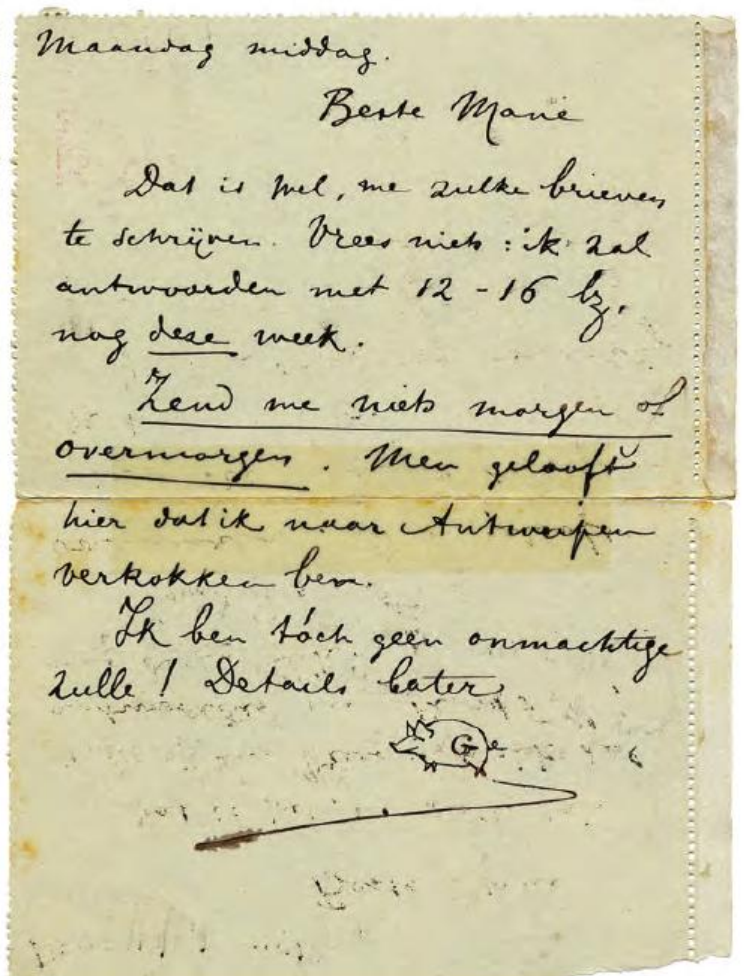 Maandag middag.
Beste Marie
Dat is wel, me zulke brieven
te schrijven. Vrees niets: ik zal
antwoorden met 12 - 16 bz.
nog deze week.
Zend me niets morgen of
overmorgen. Men gelooft
hier dat ik naar Antwerpen
vertrokken ben.
Ik ben tóch geen onmachtige
zulle! Details later
G